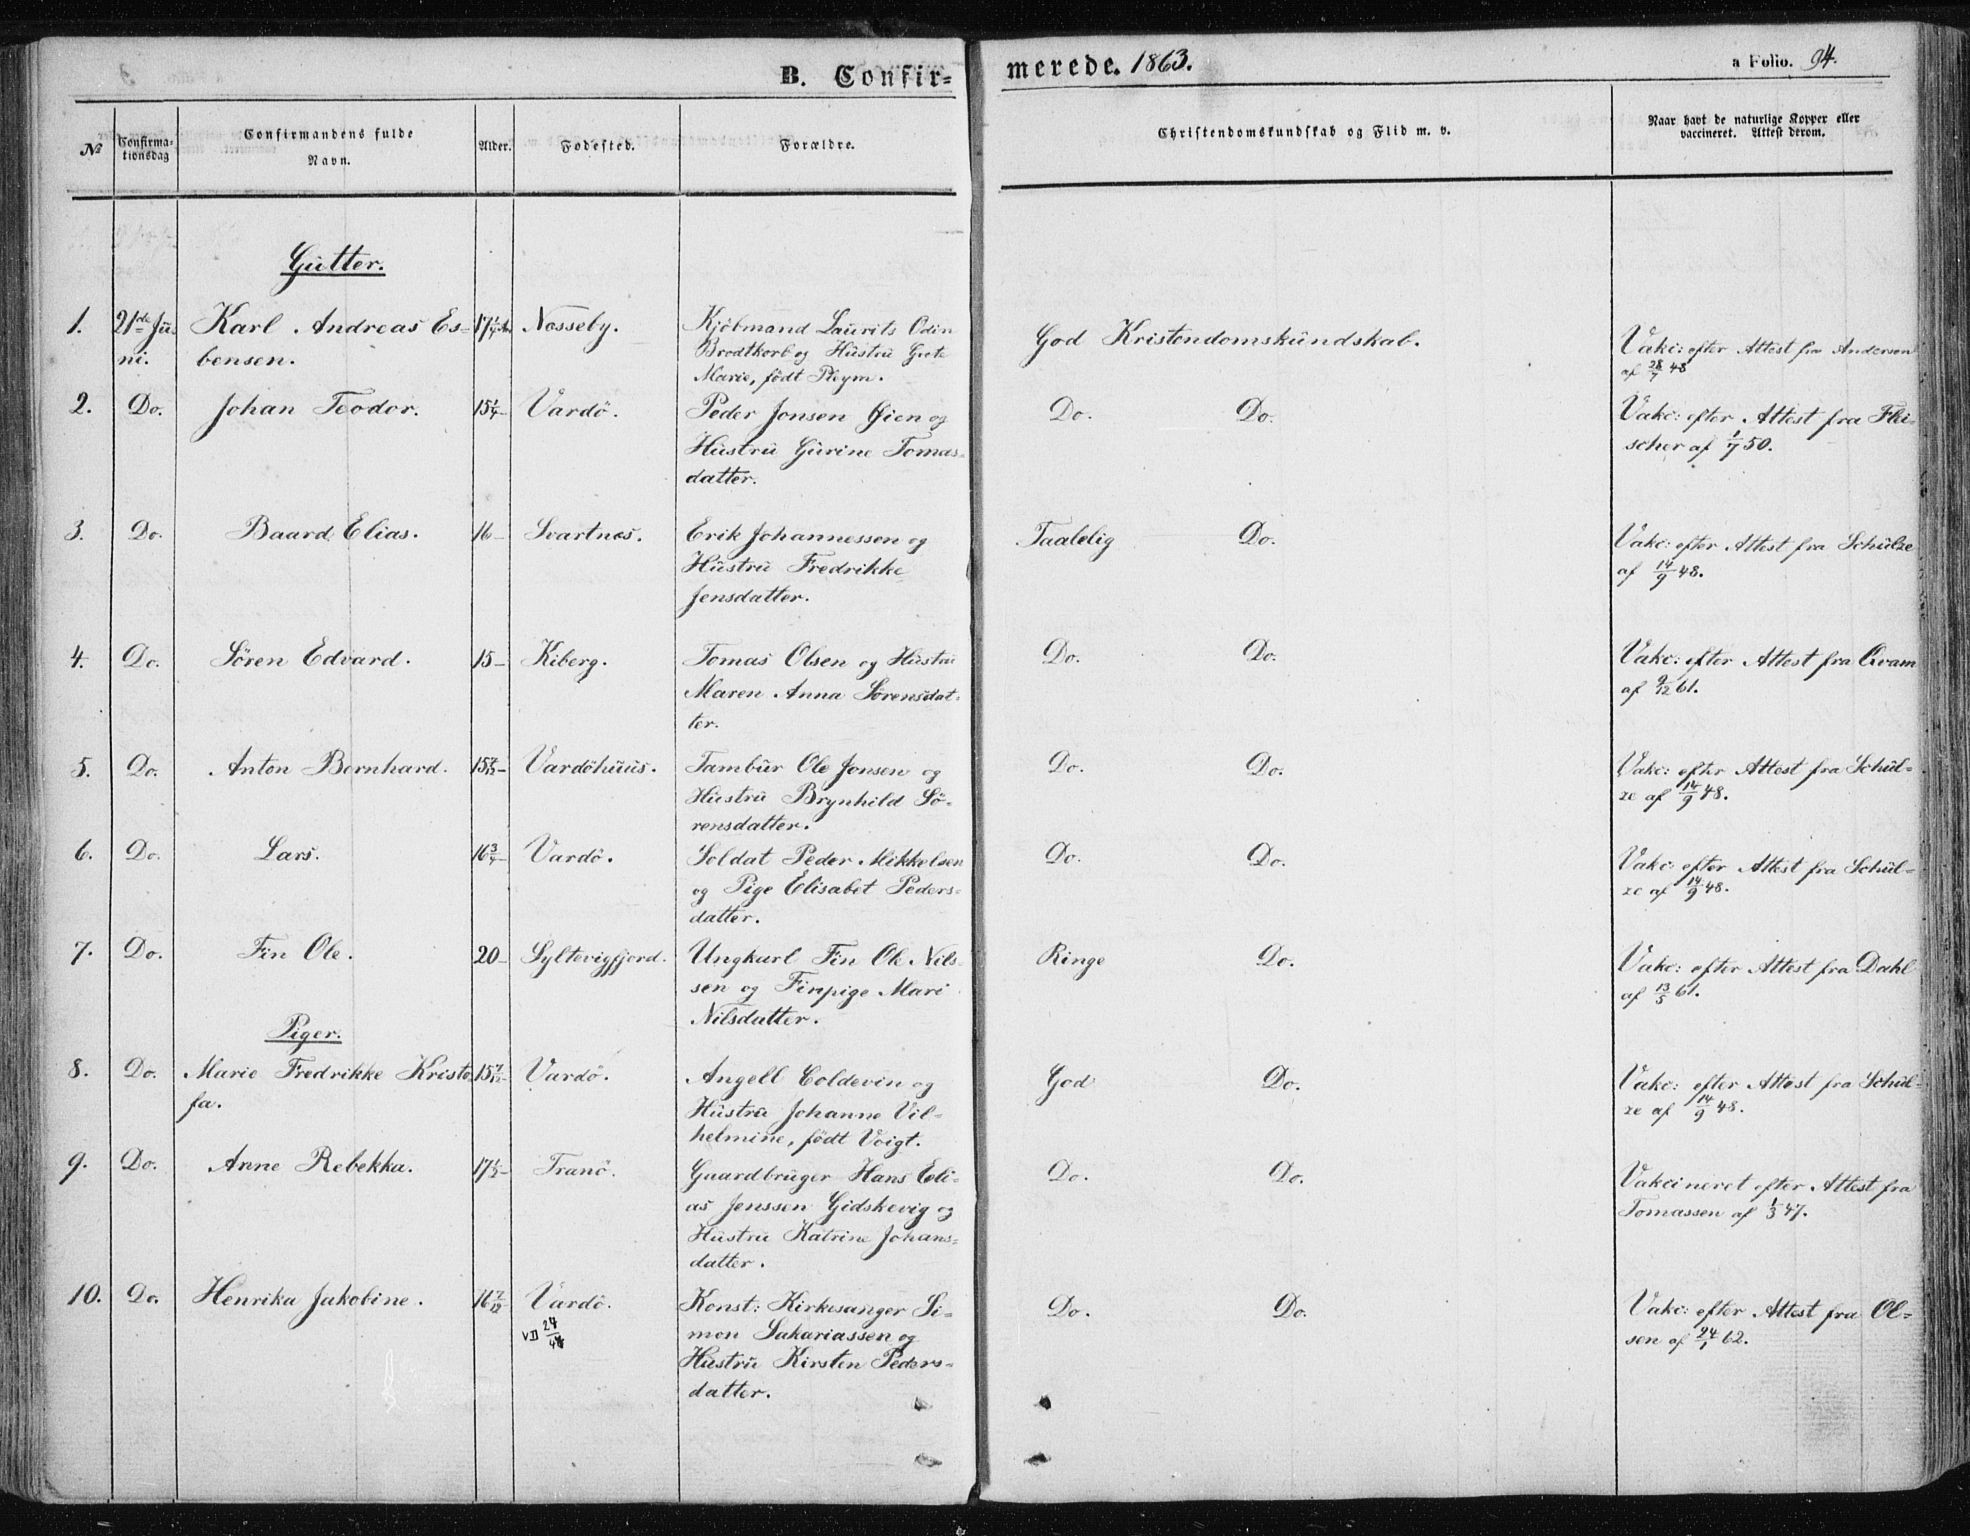 B. Confir= merede. 1863. a Folio. 94.
№ Confirma-tionsdag Confirmandens fulde Navn. Alder. Fødested. Forældre. Christendomskundskab og Flid m. v. Naar havt de naturlige Kopper eller vaccineret. Attest derom.
Gutter.
1. 21de Ju- Karl Andreas Es- 17 Nesseby. Kjöbmand Laurits Odin God Kristendomskundskab. Vakc: efter Attest fra Andersen
ni. bensen. Brodtkorb og Hustru Grete af 28/7 48
Marie, født Rhym.
2. Do. Johan Teodor. 15 1/4 Vardö. Peder Jonsen Øien og Do. Do. Vakc: efter Attest fra Flei-
Hustru Gurine Tomas- scher af 1/7 50.
datter.
3. Do. Baard Elias. 16 Svartnes. Erik Johannessen og Taalelig Do. Vakc: efter Attest fra Schulze
Hustru Fredrikke af 14/9 48.
Jensdatter.
4. Do. Sören Edvard. 15 Kiberg. Tomas Olsen og Hustru Do. Do. Vakc: efter Attest fra Qvam
Maren Anna Sörensdat- af 9/12 61.
ter.
5. Do. Anton Bernhard. 15 Vardöhuus. Tambur Ole Jonsen og Do. Do. Vakc: efter Attest fra Schul-
Hustru Brynhild Sö- ze af 14/9 48.
rensdatter.
6. Do. Lars. 16 3/4 Vardö. Soldat Peder Mikkelsen Do. Do. Vakc: efter Attest fra Schul-
og Pige Elisabet Peders- ze af 14/9 48.
datter.
7. Do. Fin Ole. 20 Syltevigfjord. Ungkarl Fin Ole Nils- Ringe Do. Vakc: efter Attest fra Dahl
sen og Finpige Mari af 13/5 61.
Nilsdatter.
Piger.
8. Do. Marie Fredrikke Kristo- 15 7/12 Vardö. Angell Coldevin og God Do. Vakc: efter Attest fra Schul-
fa. Hustru Johanne Vil- ze af 14/9 48.
helmine, født Voigt.
9. Do. Anne Rebekka. 17 1/2 Tranö. Gaardbruger Hans Eli- Do. Do. Vakcineret efter Attest fra
as Jenssen Gidskevig og Tomassen af 1/3 47.
Hustru Katrine Johans-
datter.
10. Do. Henrika Jakobine. 16 7/12 Vardö. Konst: Kirkesanger Si- Do. Do. Vakc: efter Attest fra Ol-
VII 24/ mon Sakariassen og sen af 24/1 62.
Hustru Kirsten Peders-
datter.